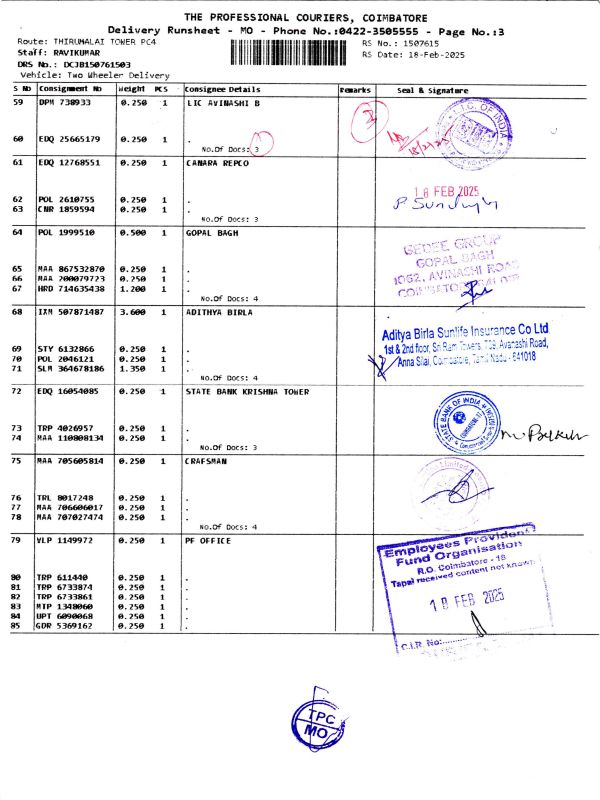 THE PROFESSIONAL COURIERS, COIMBATORE
Delivery Runsheet - MO - Phone No.:0422-3505555 - Page No.:3
Route: THIRUMALAI TOWER PC4
RS No.: 1507615
Staff: RAVIKUMAR
RS Date: 18-Feb-2025
DRS No.: DCJB150761503
Vehicle: Two Wheeler Delivery
S No Consignment No Weight PCS Consignee Details Remarks Seal & Signature
59 DPM 738933 0.250 1 LIC AVINASHI B
L.I.C. OF INDIA
2
18/2/25
60 EDQ 25665179 0.250 1 .
No.Of Docs: 3
61 EDQ 12768551 0.250 1 CANARA REPCO
18 FEB 2025
62 POL 2610755 0.250 1 .
63 CNR 1859594 0.250 1 .
No.Of Docs: 3
64 POL 1999510 0.500 1 GOPAL BAGH
GEDEE GROUP
GOPAL BAGH
1062, AVINASHI ROAD
65 MAA 867532870 0.250 1 .
66 MAA 700079723 0.250 1 .
67 HRD 714635438 1.200 1 .
No.Of Docs: 4
68 IXM 507871487 3.600 1 ADITHYA BIRLA
Aditya Birla Sunlife Insurance Co Ltd
1st & 2nd floor, Sri Ram Towers, 709, Avanashi Road,
Anna Silai, Coimbatore, Tamil Nadu - 641018
69 STY 6132866 0.250 1 .
70 POL 2046121 0.250 1 .
71 SLM 364678186 1.350 1 .
No.Of Docs: 4
72 EDQ 16054085 0.250 1 STATE BANK KRISHNA TOWER
STATE BANK OF INDIA
73 TRP 4026957 0.250 1 .
74 MAA 110808134 0.250 1 .
No.Of Docs: 3
75 MAA 705605814 0.250 1 CRAFSMAN
76 TRL 8017248 0.250 1 .
77 MAA 706606017 0.250 1 .
78 MAA 707027474 0.250 1 .
No.Of Docs: 4
79 VLP 1149972 0.250 1 PF OFFICE
Employees Provident
Fund Organisation
R.O. Coimbatore - 18
Tapal received content not known
18 FEB 2025
C.I.R. No:
80 TRP 611440 0.250 1 .
81 TRP 6733874 0.250 1 .
82 TRP 6733861 0.250 1 .
83 MTP 1348060 0.250 1 .
84 UPT 6090068 0.250 1 .
85 GDR 5369162 0.250 1 .
TPC
MO